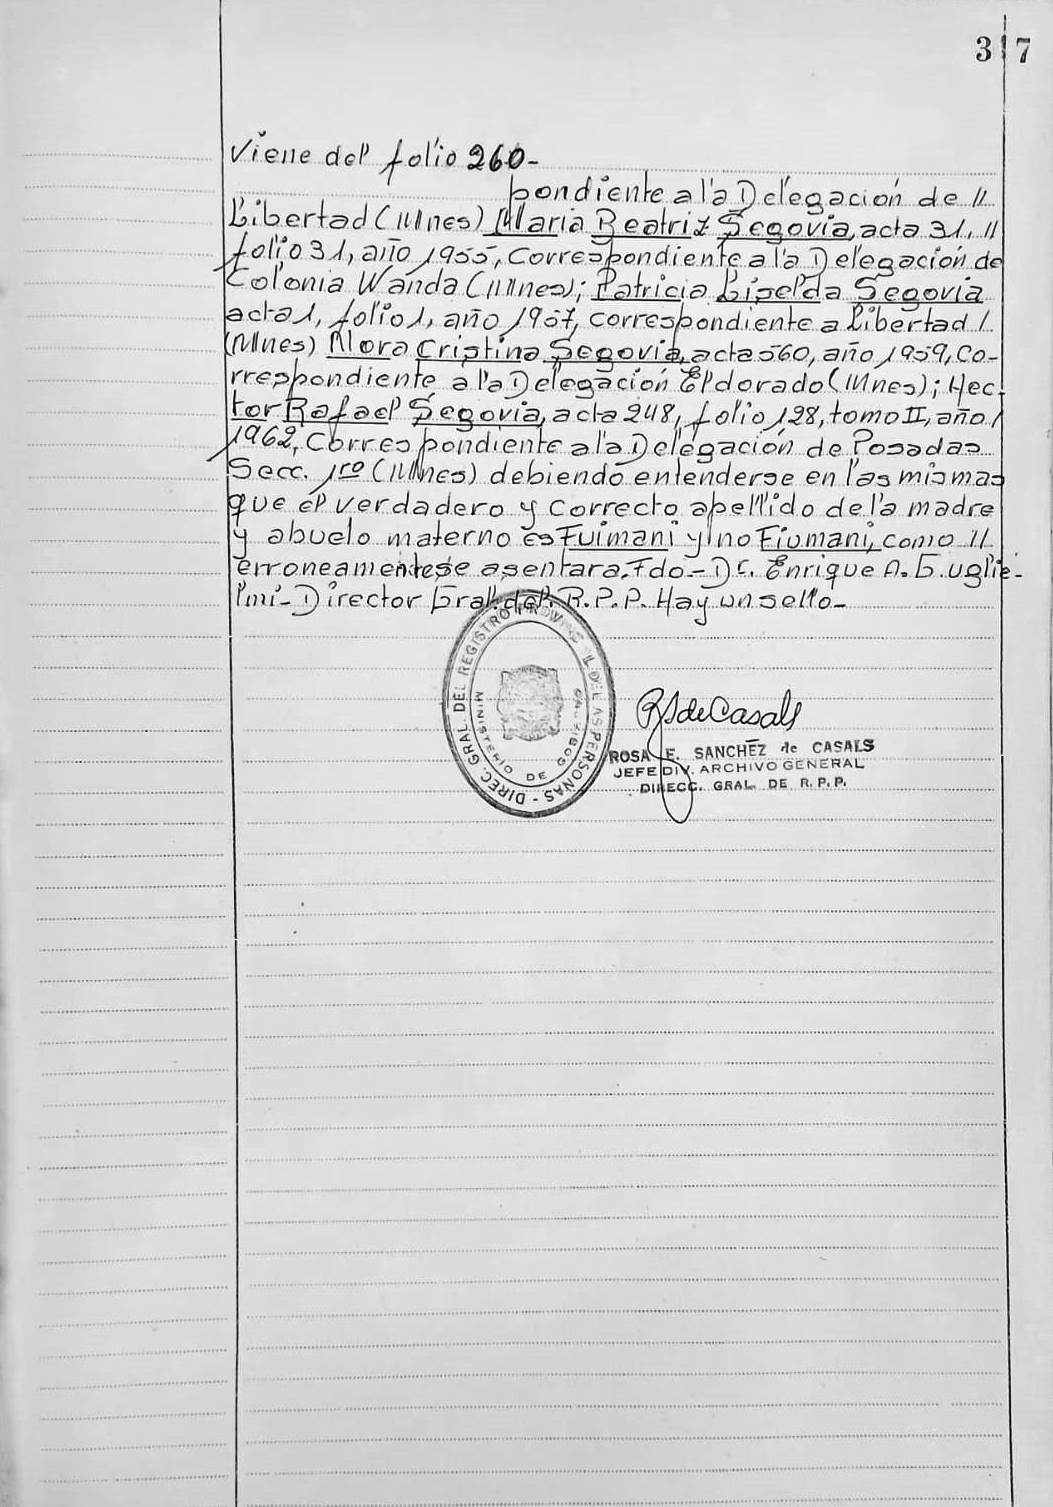 317
Viene del folio 260-
pondiente a la Delegación de //
Libertad (Mnes) Maria Beatriz Segovia, acta 31, //
folio 31, año 1955, Correspondiente a la Delegación de
Colonia Wanda (Mnes); Patricia Liselda Segovia
acta 1, folio 1, año 1957, correspondiente a Libertad /
(Mnes) Mora Cristina Segovia, acta 560, año 1959, Co-
rrespondiente a la Delegación Eldorado (Mnes); Hec-
tor Rafael Segovia, acta 248, folio 128, tomo II, año /
1962, Correspondiente a la Delegación de Posadas
Secc. 1ro (Mnes) debiendo entenderse en las mismas
que el verdadero y correcto apellido de la madre
y abuelo materno es Fuimani y no Fiumani, como //
erroneamente se asentara. Fdo - Dr. Enrique A. Guglie-
lmi - Director Gral. del. R.P.P. Hay un sello -
DIREC. GRAL. DEL REGISTRO PROVINCIAL DE LAS PERSONAS -
MINISTERIO DE GOBIERNO
RSdeCasals
ROSA E. SANCHEZ de CASALS
JEFE DIV. ARCHIVO GENERAL
DIRECC. GRAL. DE R.P.P.